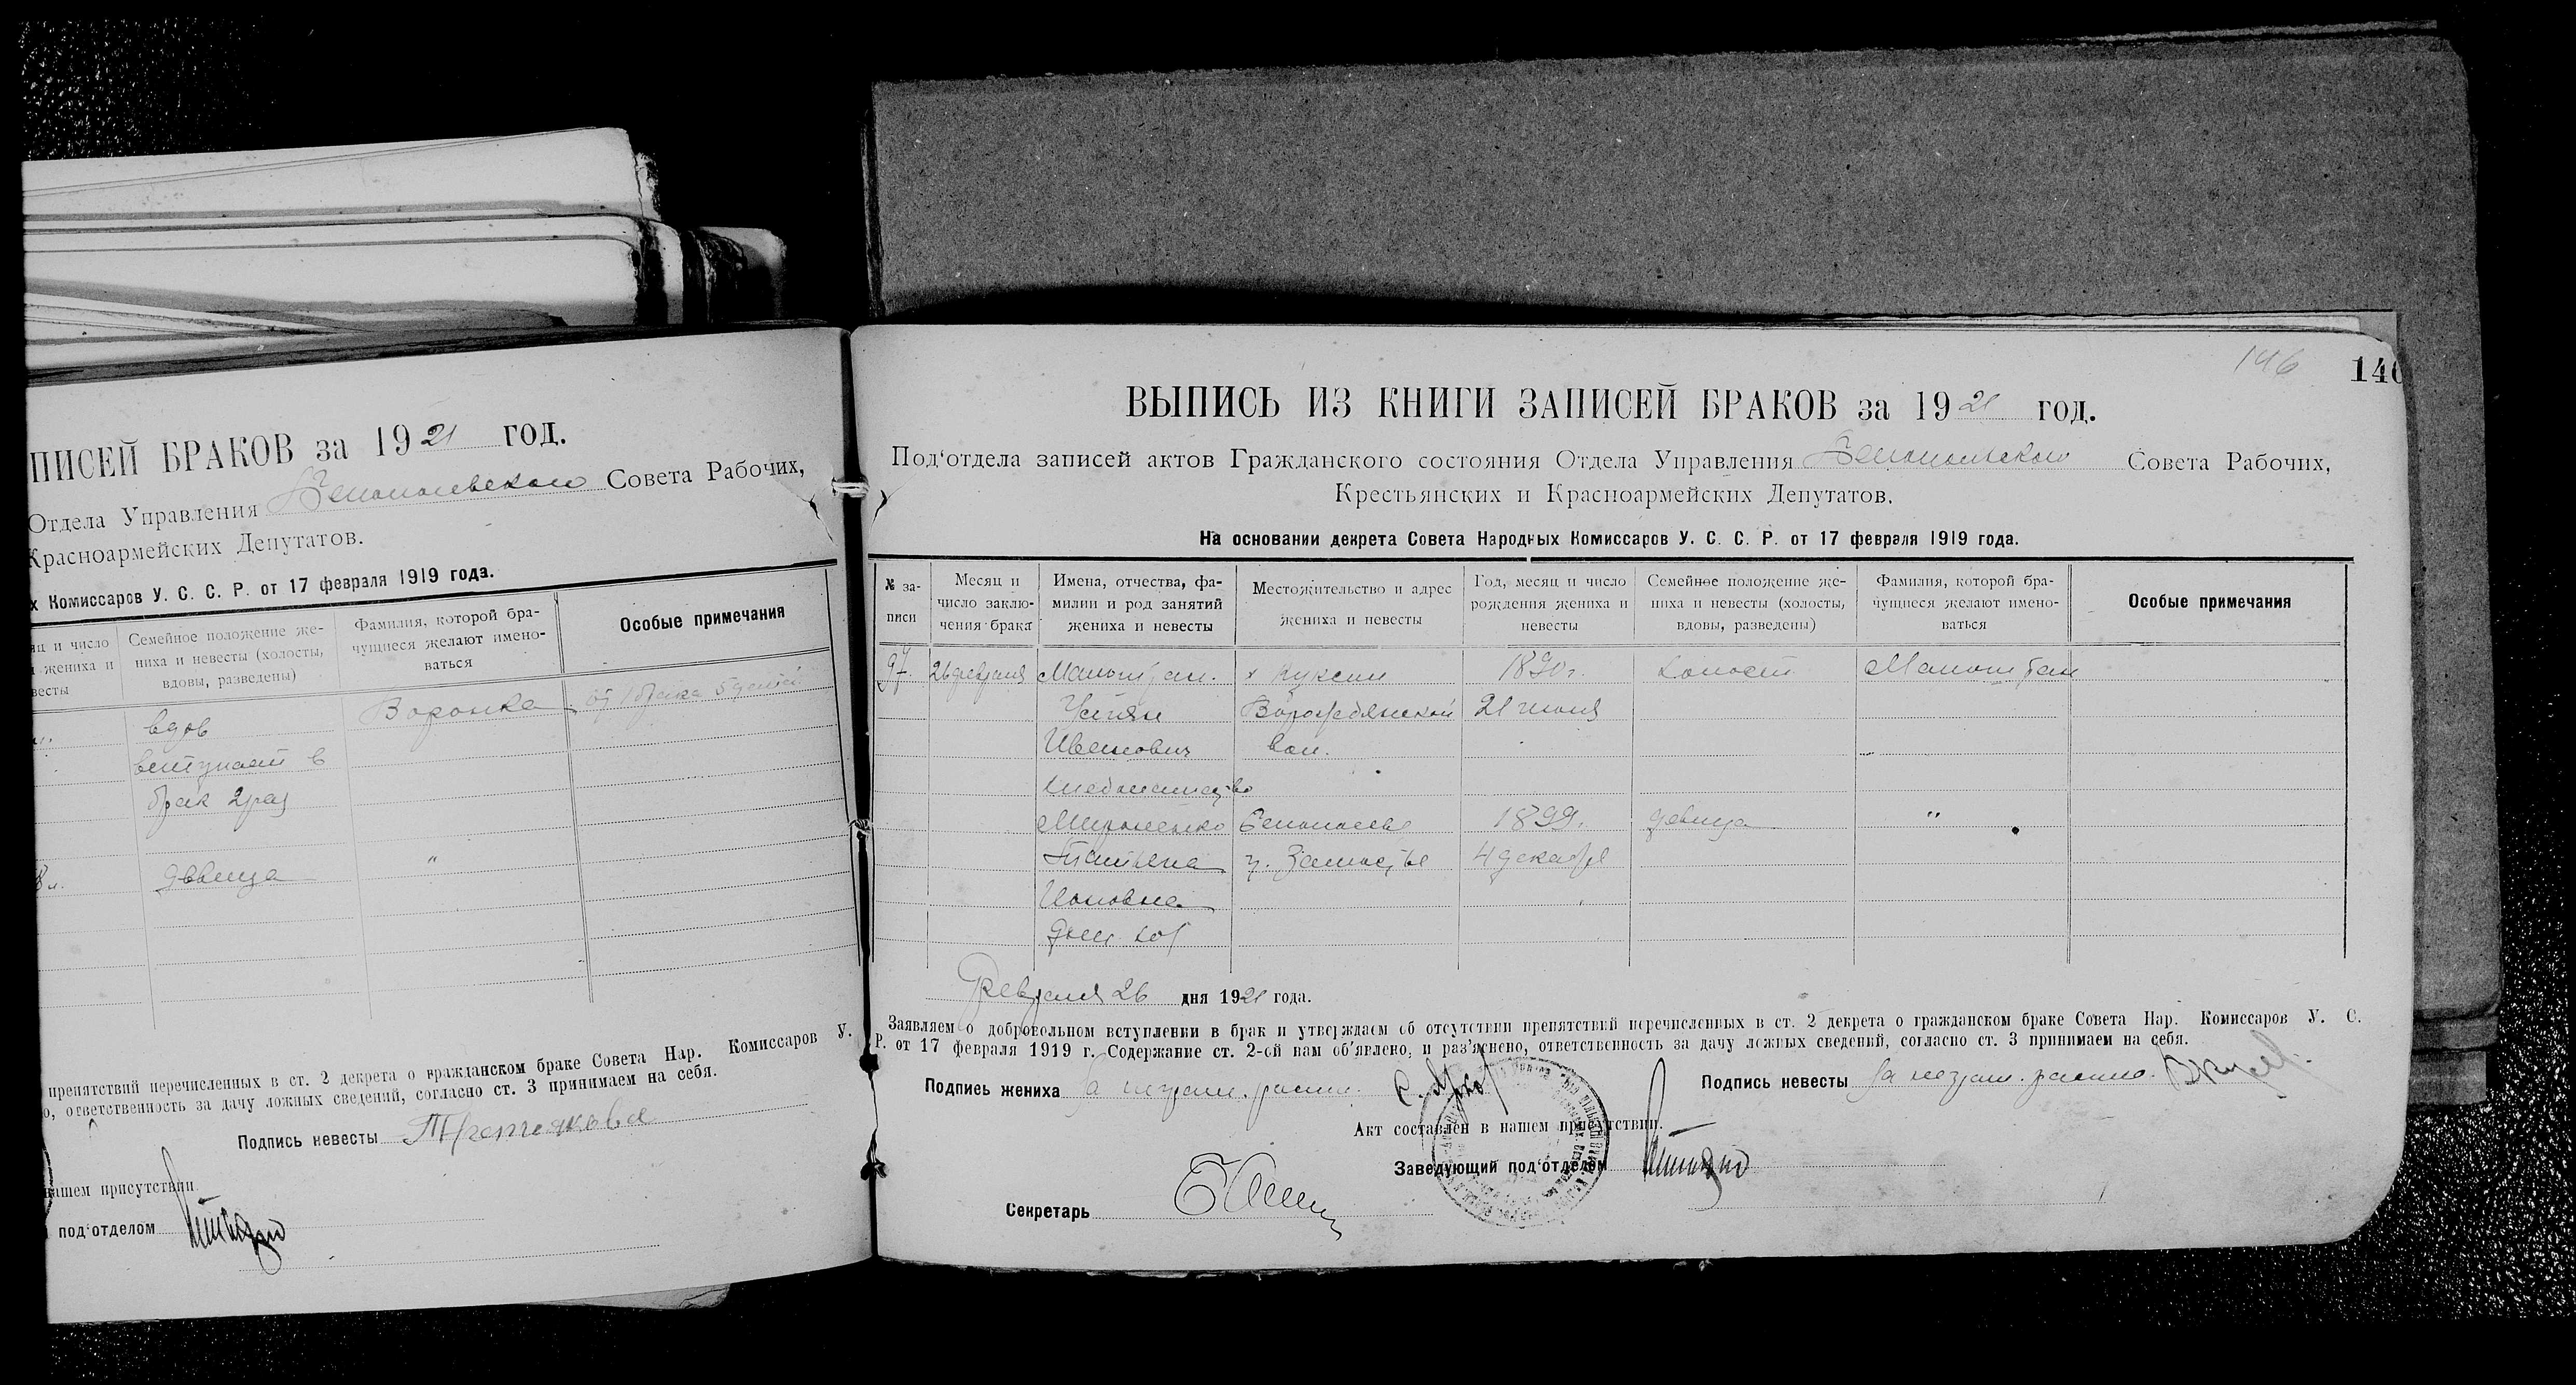 ПИСЕЙ БРАКОВ за 1921 год.
Отдела Управления Совета Рабочих,
Красноармейских Депутатов.
х Комиссаров У. С. С. Р. от 17 февраля 1919 года.
яц и число
я жениха и
весты
Семейное положение же-
ниха и невесты (холосты,
вдовы, разведены)
Фамилия, которой бра-
чущиеся желают имено-
ваться
Особые примечания
вдов
вступает в
брак 2 раз
Воронка
от 1 брака 5 детей
девица
"
препятствий перечисленных в ст. 2 декрета о гражданском браке Совета Нар. Комиссаров У.
о, ответственность за дачу ложных сведений, согласно ст. 3 принимаем на себя.
Подпись невесты Третьякова
нашем присутствии.
под'отделом
146
146
ВЫПИСЬ ИЗ КНИГИ ЗАПИСЕЙ БРАКОВ за 1921 год.
Под'отдела записей актов Гражданского состояния Отдела Управления Совета Рабочих,
Крестьянских и Красноармейских Депутатов.
На основании декрета Совета Народных Комиссаров У. С. С. Р. от 17 февраля 1919 года.
№ за-
писи
Месяц и
число заклю-
чения брака
Имена, отчества, фа-
милии и род занятий
жениха и невесты
Местожительство и адрес
жениха и невесты
Год, месяц и число
рождения жениха и
невесты
Семейное положение же-
ниха и невесты (холосты,
вдовы, разведены)
Фамилия, которой бра-
чущиеся желают имено-
ваться
Особые примечания
97. 26 февраля Малоштан. 1890 г. холост Малоштан
Устин Ворожбянской 21 июня
Иванович вол.
хлебопашество
Мироненко 1899. девица "
Татьяна у. Замостье 4 декабря
Ионовна
дом. хоз
Февраля 26 дня 1921 года.
Заявляем о добровольном вступлении в брак и утверждаем об отсутствии препятствий перечисленных в ст. 2 декрета о гражданском браке Совета Нар. Комиссаров У. С.
Р. от 17 февраля 1919 г. Содержание ст. 2-ой нам об'явлено, и раз'яснено, ответственность за дачу ложных сведений, согласно ст. 3 принимаем на себя.
Подпись жениха За неграм. распис. Подпись невесты За неграм. распис.
Акт составлен в нашем присутствии.
Заведующий под'отделом
Секретарь